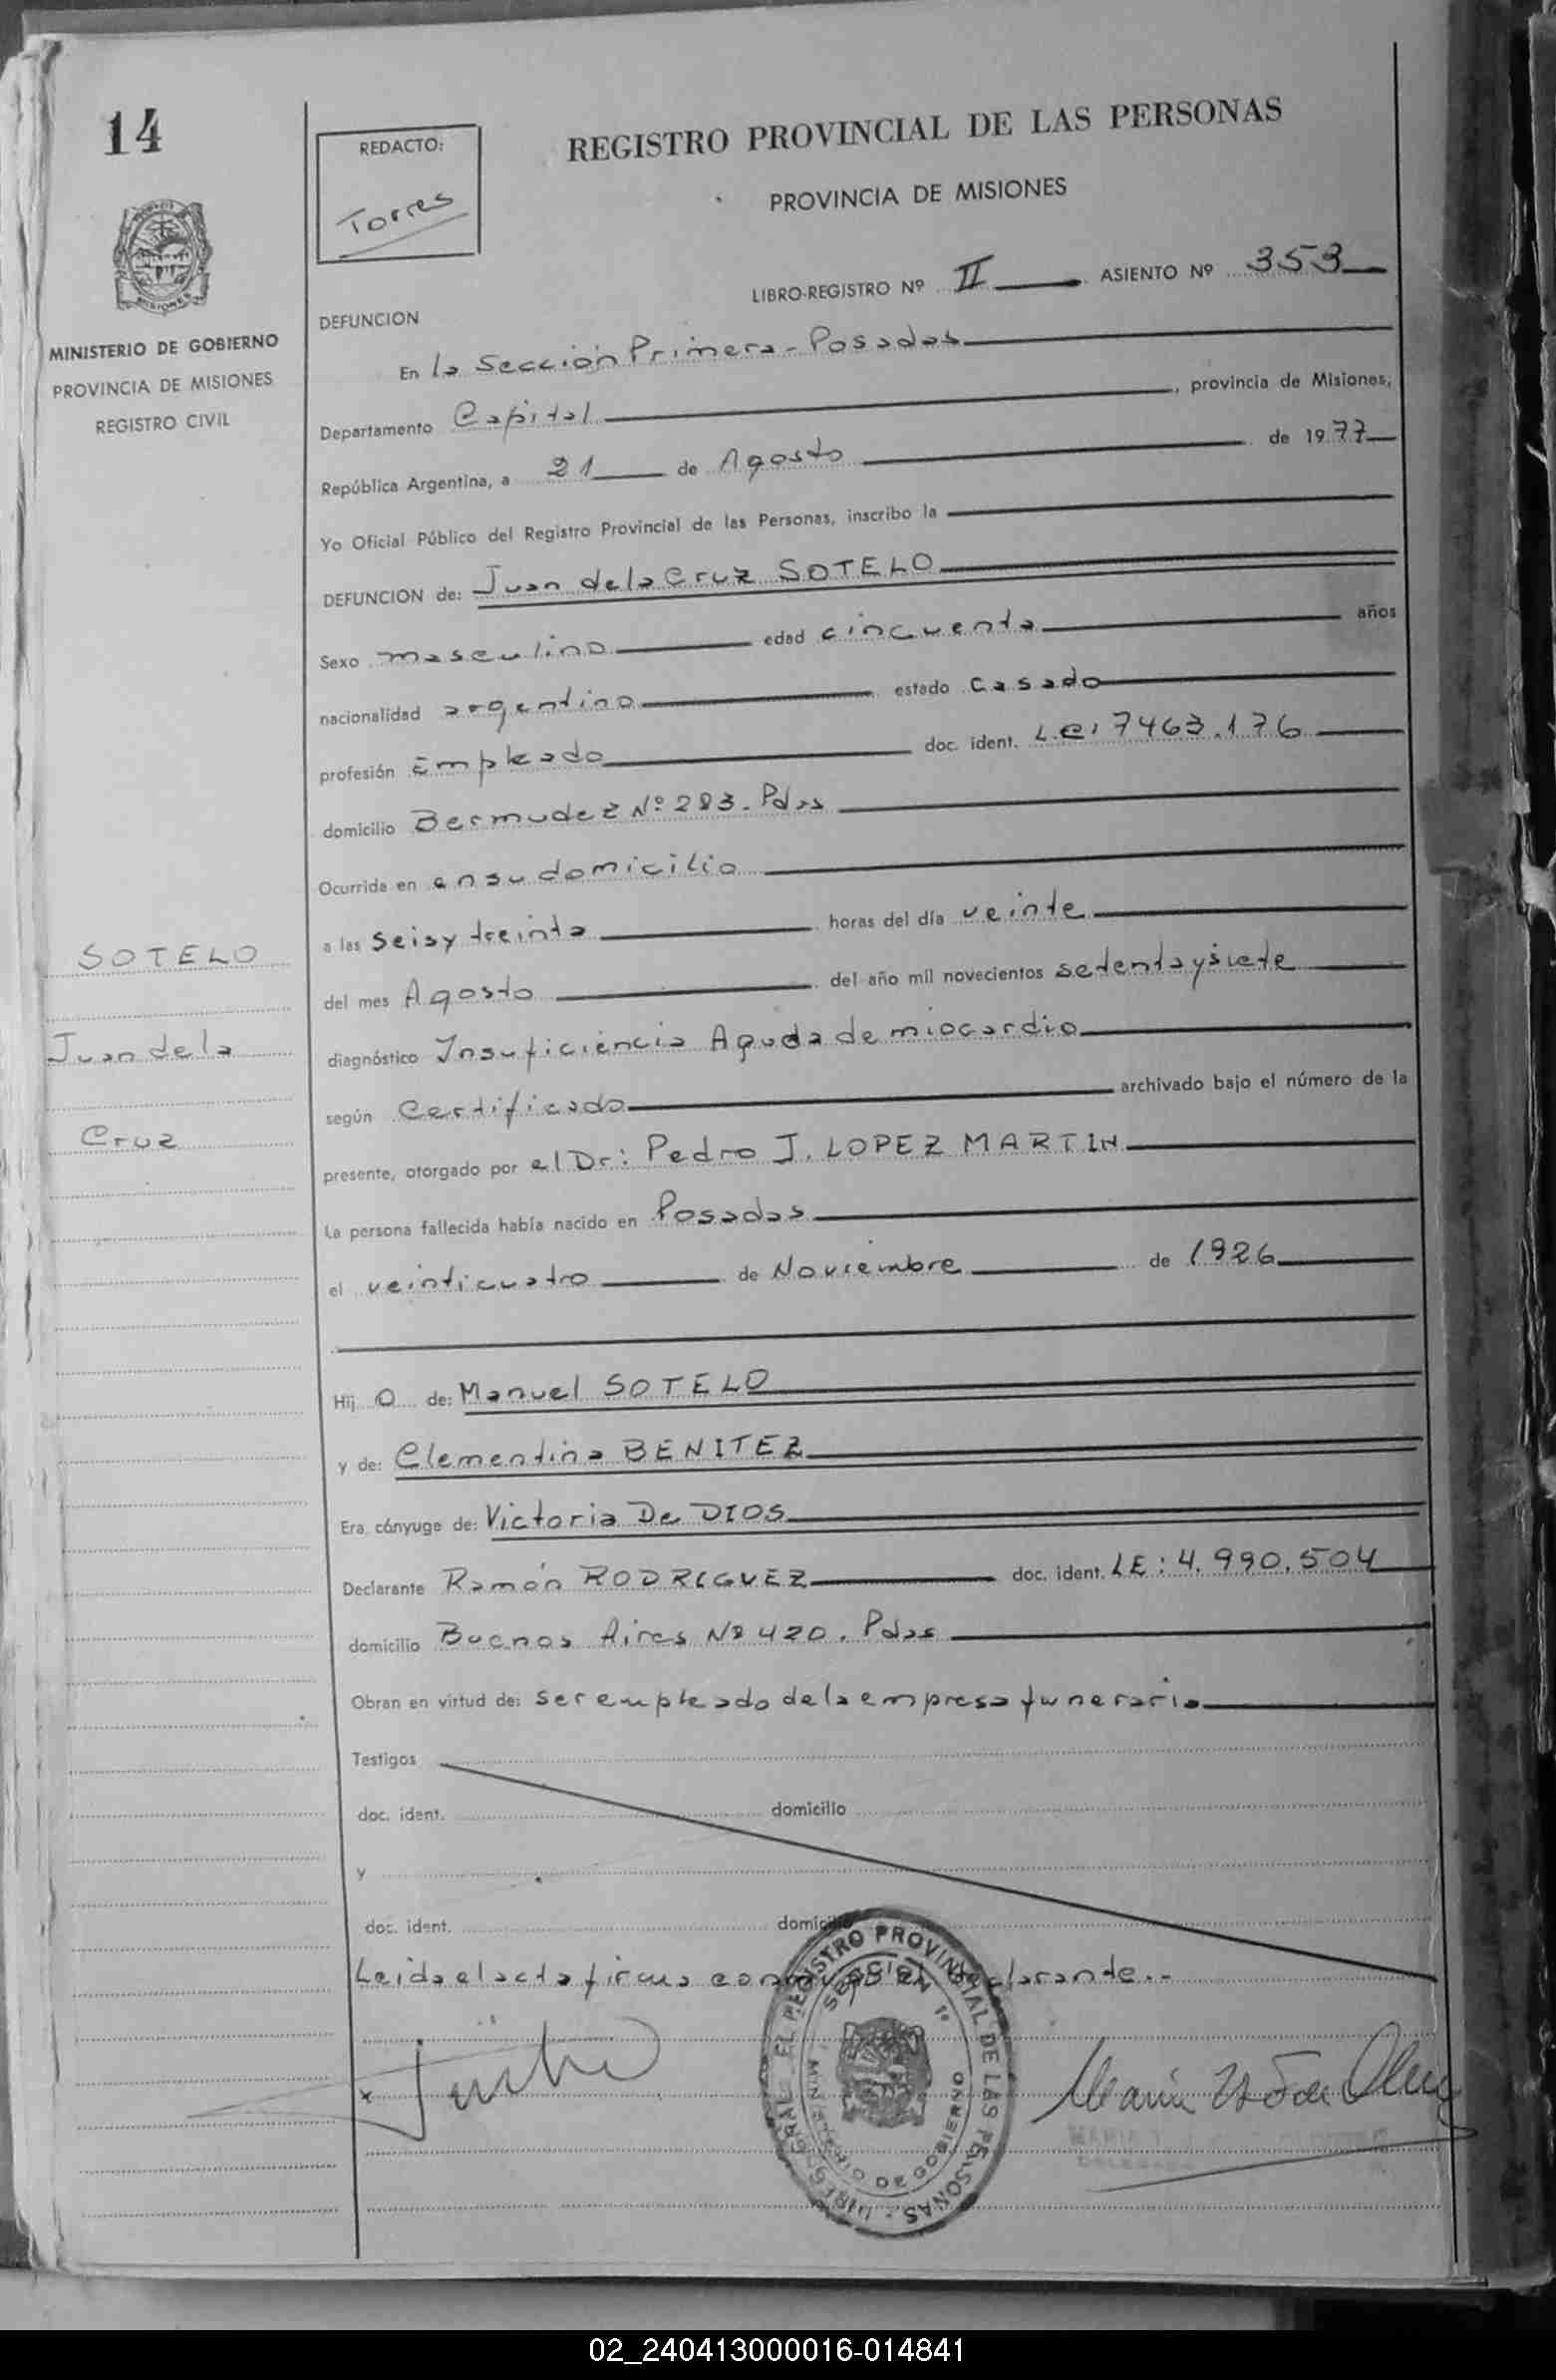 14
REDACTO:
Torres
REGISTRO PROVINCIAL DE LAS PERSONAS
PROVINCIA DE MISIONES
LIBRO-REGISTRO Nº II ASIENTO Nº 353
MISIONES
MINISTERIO DE GOBIERNO
PROVINCIA DE MISIONES
REGISTRO CIVIL
DEFUNCION
En la Sección Primera - Posadas
Departamento Capital, provincia de Misiones,
República Argentina, a 21 de Agosto de 1977
Yo Oficial Público del Registro Provincial de las Personas, inscribo la
DEFUNCION de: Juan de la Cruz SOTELO
Sexo masculino edad cincuenta años
nacionalidad argentino estado casado
profesión Empleado doc. ident. L.E: 7463.176
domicilio Bermudez Nº 283. Pdas
Ocurrida en en su domicilio
a las seis y treinta horas del día veinte
del mes Agosto del año mil novecientos setenta y siete
diagnóstico Insuficiencia Aguda de miocardio
según certificado archivado bajo el número de la
presente, otorgado por el Dr: Pedro J. LOPEZ MARTIN
La persona fallecida había nacido en Posadas
el veinticuatro de Noviembre de 1926
SOTELO
Juan de la
Cruz
Hij o de: Manuel SOTELO
y de: Clementina BENITEZ
Era cónyuge de: Victoria De DIOS
Declarante Ramón RODRIGUEZ doc. ident. LE: 4.990.504
domicilio Buenos Aires Nº 420. Pdas
Obran en virtud de: ser empleado de la empresa funeraria
Testigos
doc. ident. domicilio
y
doc. ident. domicilio
Leida el acta firma conmigo el declarante.-
EL REGISTRO PROVINCIAL DE LAS PERSONAS
SECCION 1ª
MINISTERIO DE GOBIERNO
02_240413000016-014841